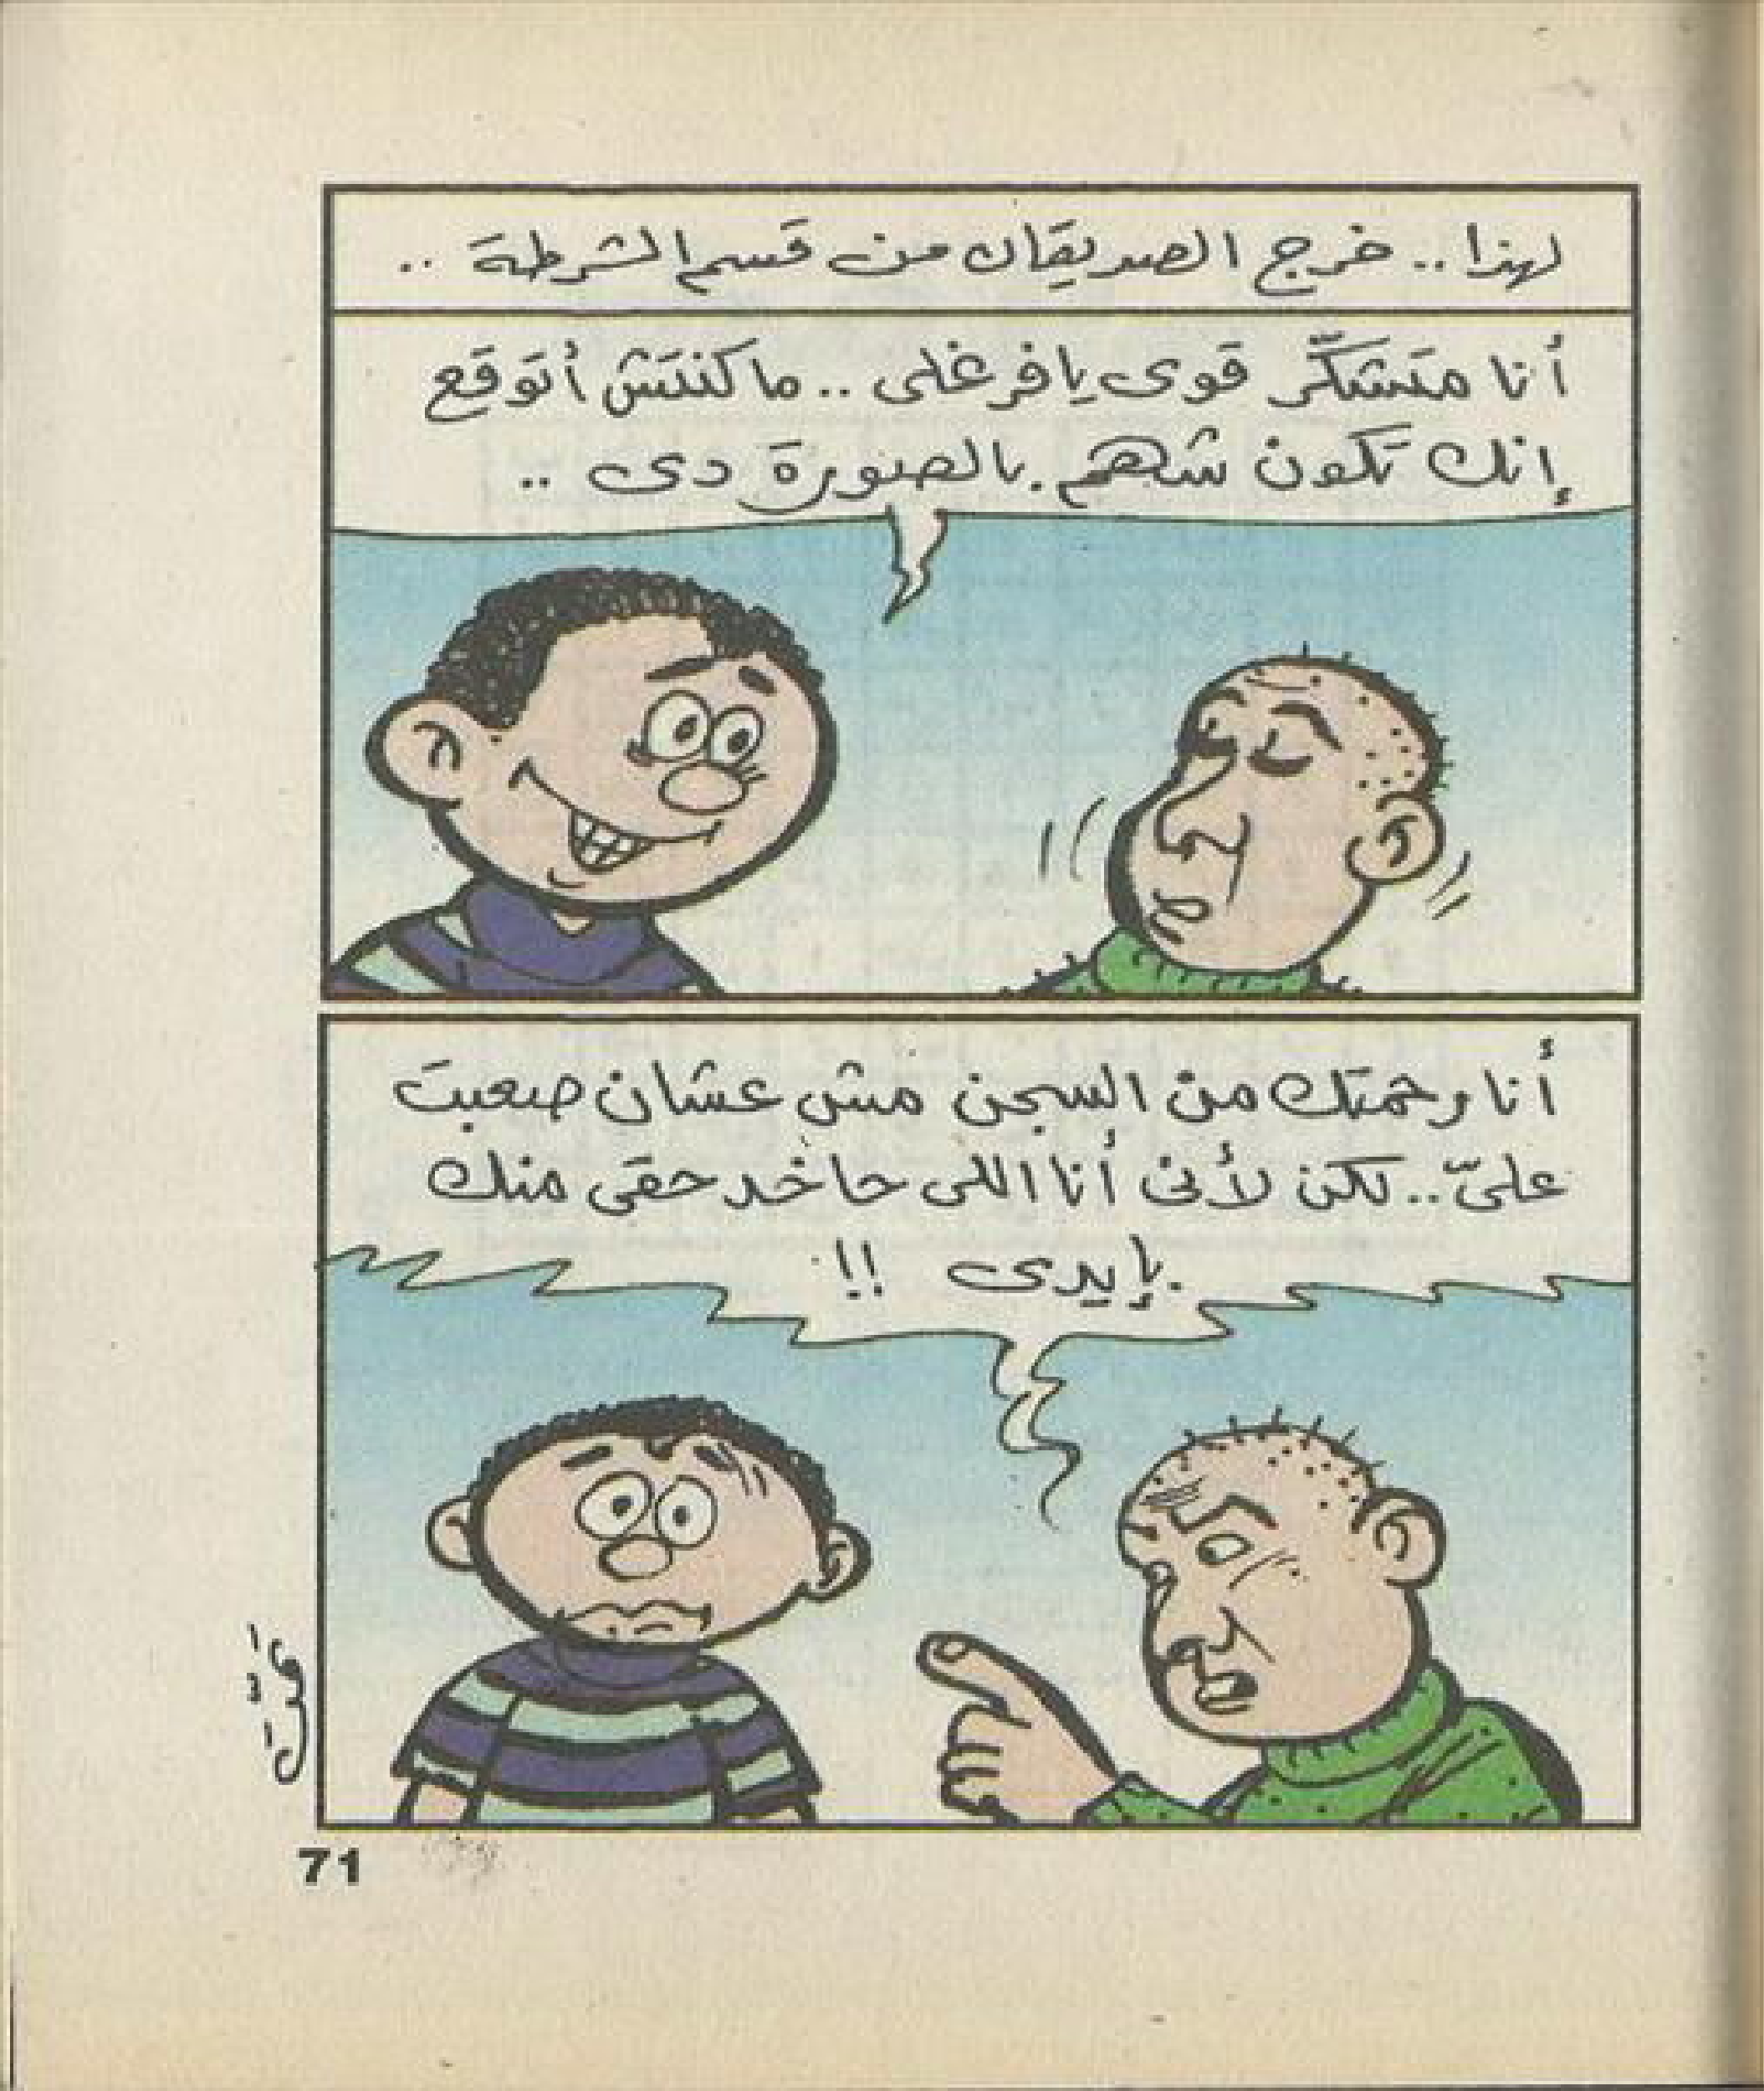 لهذا.. خرج الصديقان من قسم الشرطة ..
أنا متشكّر قوى يا فرغلى .. ما كنتش أتوقع
إنك تكون شهم بالصورة دى ..
أنا رحمتك من السجن مش عشان صعبت
علىّ.. لكن لأنى أنا اللى حاخد حقى منك
بإيدى !!
71